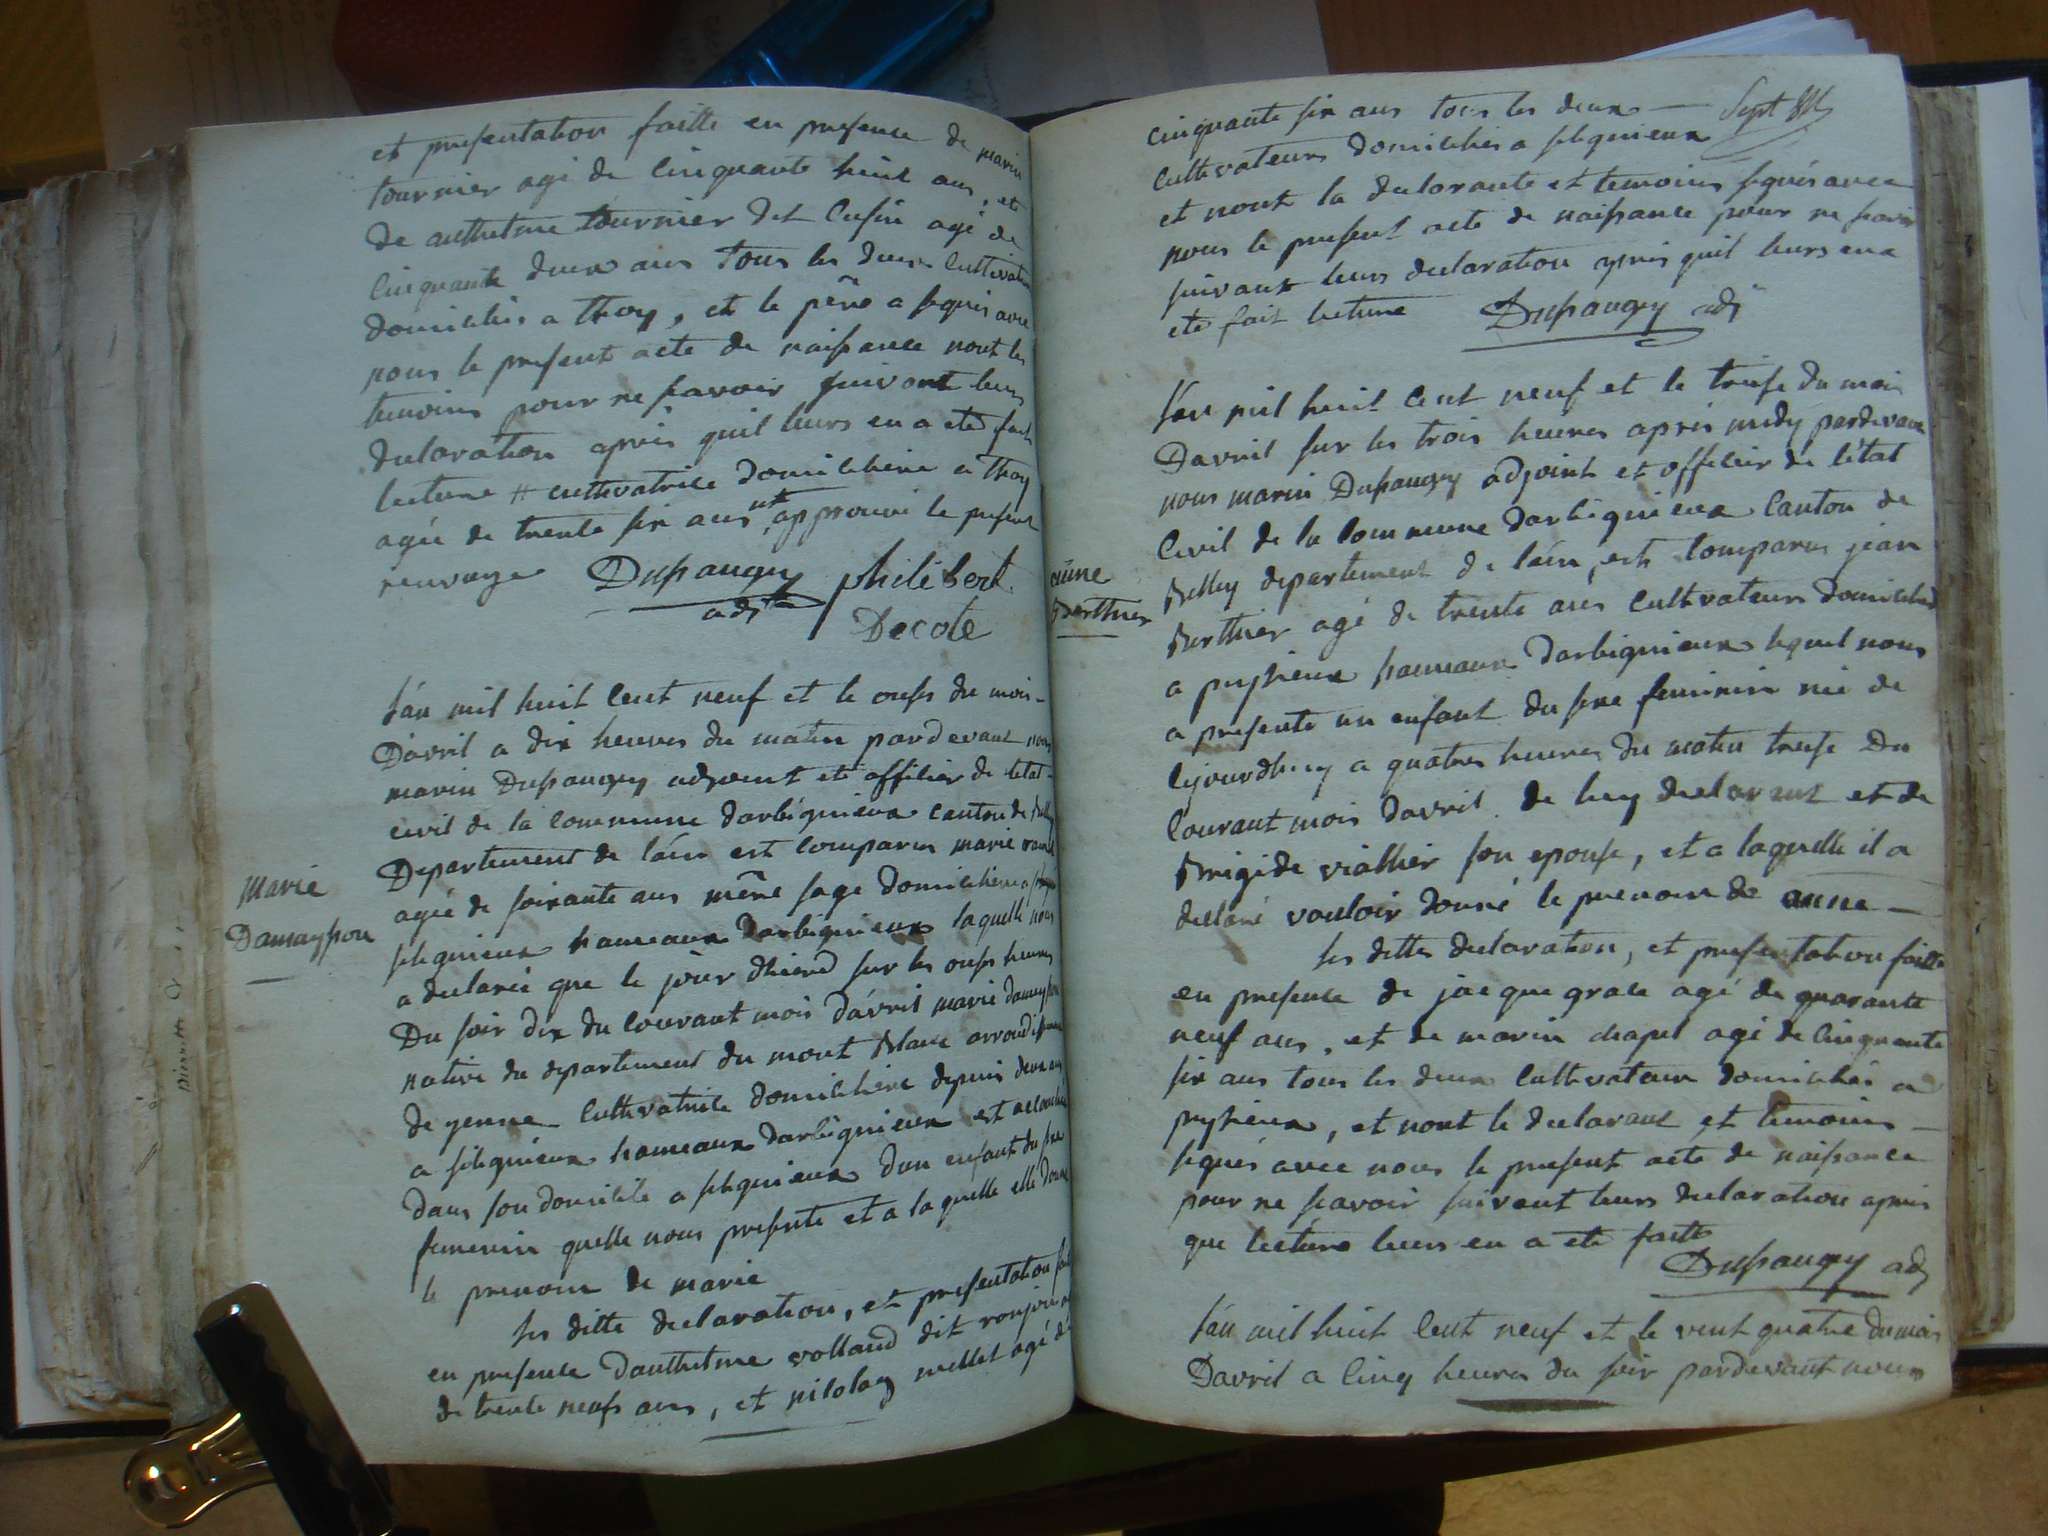 et presentation faitte en presence de marin
tournier agé de Cinquante huit ans, et
de anthelme tournier dit Cusin agé de
Cinquante deux ans Tous les deux Cultivateurs
domiciliés a thoy, et le père a signés avec
nous le present acte de naissance nont les
temoins pour ne savoir suivant leurs
declaration aprés quil leurs en a eté fait
lecture # cultivatrice domicilliéee a thoy
agée de trente six ans approuvé le present
renvoye Dupaugey philibert
adjt Decote
Marie
Damaysson
L'an mil huit Cent neuf et le onze du mois
Davril a dix heures du matin pardevant nous
marin Dupaugey adjoint et officier de letat
civil de la commune darbignieux canton de Belley
Departement de lain est Comparue marie
agée de soixante ans mère sage domiciliéee a
slignieux hameaux Darbignieux laquelle nous
a declaré que le jour dhiere sur les onze heures
Du soir dix du Courant mois d'avril marie damaysson
native du departement du mont Blanc arrondissement
de yenne Cultivatrice domiciliéee depuis deux ans
a slignieux hameaux darbignieux est accouchée
dans son domicile a slignieux dun enfant du sexe
femenin quelle nous presente et a laquelle elle donne
le prenom de marie
les ditte declaration, et presentation faitte
en presence danthelme volland dit agé
de trente neufs ans, et nicolas mellet agé de
cinquante six ans tous les deux — Sept
Cultivateurs domiciliés a slignieux
et nont la declarante et temoins signés avec
nous le present acte de naissance pour ne savoir
suivant leurs declaration aprés quil leurs en a
eté fait lecture Dupaugey adj
anne
Berthier
L'an mil huit Cent neuf et le treise du mois
Davril sur les trois heures aprés midy pardevant
nous marin Dupaugey adjoint et officier de l'état
Civil de la Commune darbignieux Canton de
Belley departement de lain, est Comparus jean
Berthier agé de trente ans Cultivateurs domicilié
a peyzieux hameaux Darbignieux lequel nous
a presenté un enfant du sexe feminin né de
cejourdhuy a quatres heures du matin treise Du
Courant mois davril de luy declarant et de
Brigide viallier son epouse, et a laquelle il a
declaré vouloir donné le prenom de anne —
les dittes declaration, et presentation faitte
en presence de jacque grace agé de quarante
neuf ans, et de marin chapel agé de Cinquante
six ans tous les deux Cultivateurs domiciliés a
peyzieux, et nont le declarant et temoins —
signés avec nous le present acte de naissance
pour ne savoir suivant leurs declaration aprés
que lecture leurs en a eté faitte
Dupaugey adj
L'an mil huit Cent neuf et le vent quatre du mois
Davril a Cinq heures du soir pardevant nous